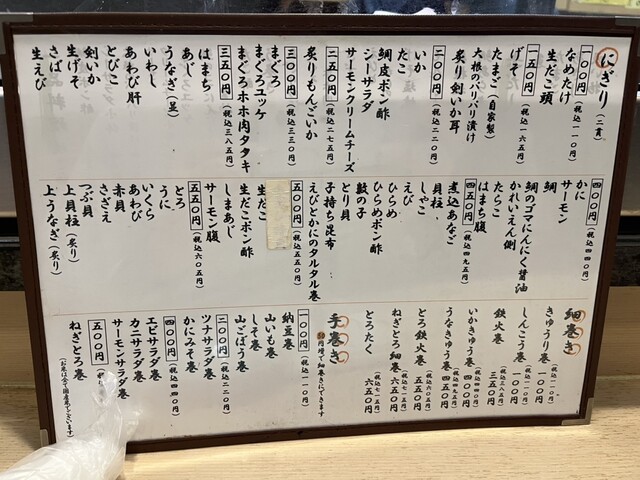 にぎり(二貫)
一〇〇円(税込一一〇円)
なめたけ
生だこ頭
一五〇円(税込一六五円)
げそ
たまご(自家製)
大根のパリパリ漬け
炙り剣いか耳
二〇〇円(税込二二〇円)
いか
たこ
鯛皮ポン酢
シーサラダ
サーモンクリームチーズ
二五〇円(税込二七五円)
炙りもんごいか
三〇〇円(税込三三〇円)
まぐろ
まぐろユッケ
まぐろホホ肉タタキ
三五〇円(税込三八五円)
はまち
あじ
うなぎ
いわし
あわび肝
とびこ
剣いか
生げそ
さば
生えび
四〇〇円(税込四四〇円)
かに
サーモン
鯛
鯛のゴマにんにく醤油
かれいえん側
たらこ
はまち腹
四五〇円(税込四九五円)
煮込あなご
貝柱
しゃこ
えび
ひらめ
ひらめポン酢
数の子
とり貝
子持ち昆布
えびとかにのタルタル巻
五〇〇円(税込五五〇円)
生だこ
生だこポン酢
しまあじ
サーモン腹
五五〇円(税込六〇五円)
とろ
うに
いくら
あわび
赤貝
さざえ
つぶ貝
上貝柱(炙り)
上うなぎ(炙り)
細巻き
きゅうり巻 一〇〇円(税込一一〇円)
しんこう巻 一〇〇円(税込一一〇円)
鉄火巻 三五〇円(税込三八五円)
いかきゅう巻 四〇〇円(税込四四〇円)
うなきゅう巻 四五〇円(税込四九五円)
とろ鉄火巻 五五〇円(税込六〇五円)
ねぎとろ細巻 六五〇円(税込七一五円)
とろたく 六五〇円(税込七一五円)
手巻き
一〇〇円(税込一一〇円)
納豆巻
山いも巻
しそ巻
山ごぼう巻
二〇〇円(税込二二〇円)
ツナサラダ巻
かにみそ巻
四〇〇円(税込四四〇円)
エビサラダ巻
カニサラダ巻
サーモンサラダ巻
五〇〇円
ねぎとろ巻